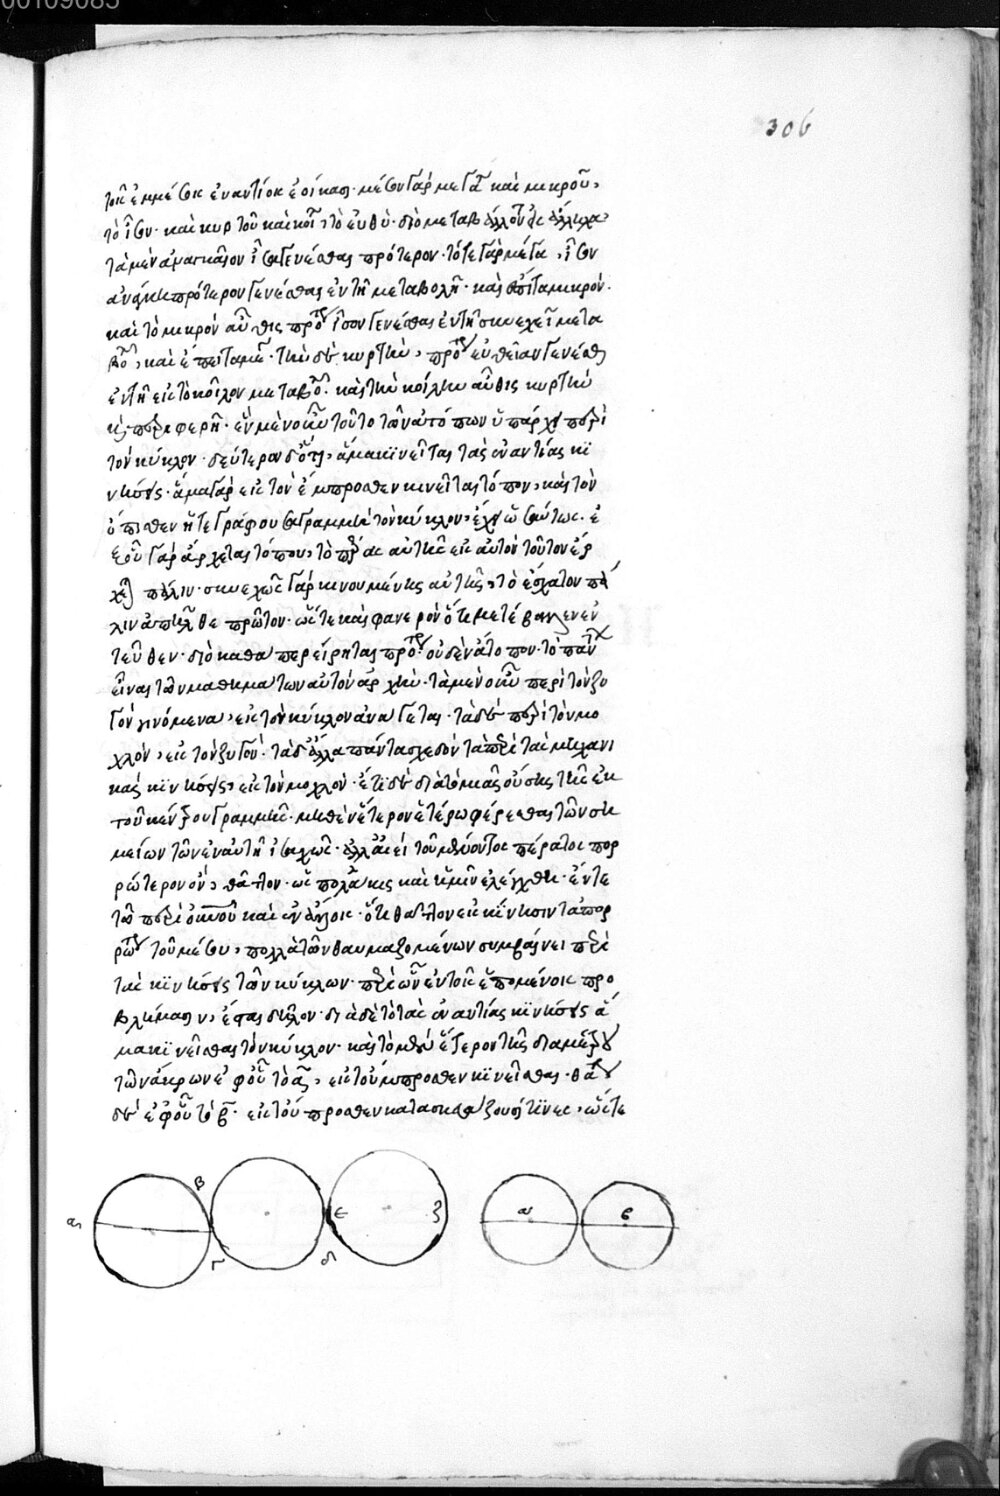 00109085
306
τοῖς ἐμμέσοις ἐναντίοις ἐοίκασι· μέσον γὰρ μεγάλου καὶ μικροῦ,
τὸ ἴσον· καὶ κυρτοῦ καὶ κοίλου τὸ εὐθύ· διὸ μεταβάλλοντα εἰς ἄλληλα,
τὰ μὲν ἀναγκαῖον ἴσα γενέσθαι πρότερον· τό τε γὰρ μέγα, ἴσον
ἀνάγκη πρότερον γενέσθαι ἐν τῇ μεταβολῇ· καὶ ἔπειτα μικρόν·
καὶ τὸ μικρὸν αὖθις πρότερον ἴσον γενέσθαι ἐν τῇ συνεχεῖ μετα
βολῇ, καὶ ἔπειτα μέγα· τὴν δὲ κυρτὴν, πρότερον εὐθεῖαν γενέσθαι
ἐν τῇ εἰς τὸ κοῖλον μεταβολῇ· καὶ τὴν κοίλην αὖθις κυρτὴν
καὶ περιφερῆ· ἓν μὲν οὖν τοῦτο τῶν ἀτόπων ὑπάρχει περὶ
τὸν κύκλον· δεύτερον δὲ ὅτι, ἅμα κινεῖται τὰς ἐναντίας κι
νήσεις· ἅμα γὰρ εἰς τὸν ἔμπροσθεν κινεῖται τόπον, καὶ τὸν
ὄπισθεν ἥ τε γράφουσα γραμμὴ τὸν κύκλον, ἔχει ὡσαύτως· ἐ
ξ οὗ γὰρ ἄρχεται τόπου, τὸ πέρας αὐτῆς εἰς αὐτὸν τοῦτον ἔρ
χεται πάλιν· συνεχῶς γὰρ κινουμένης αὐτῆς, τὸ ἔσχατον πά
λιν ἀπῆλθε πρῶτον· ὥστε καὶ φανερὸν ὅτι μετέβαλλεν ἐν
τεῦθεν· διὸ καθάπερ εἴρηται πρότερον· οὐδὲν ἄτοπον· τὸ πάντων
εἶναι τῶν μαθημάτων αὐτὸν ἀρχήν· τὰ μὲν οὖν περὶ τὸν ζυ
γὸν γινόμενα, εἰς τὸν κύκλον ἀνάγεται· τὰ δὲ περὶ τὸν μο
χλὸν, εἰς τὸν ζυγόν· τὰ δ' ἄλλα πάντα σχεδὸν τὰ περὶ τὰς μηχανι
κὰς κινήσεις, εἰς τὸν μοχλόν· ἔτι δὲ διὰ τὸ μιᾶς οὔσης τῆς ἐκ
τοῦ κέντρου γραμμῆς· μηθὲν ἕτερον ἑτέρῳ φέρεσθαι τῶν ση
μείων τῶν ἐν αὐτῇ ἰσοταχῶς· ἀλλ' ἀεὶ τοῦ μένοντος πέρατος πορ
ρώτερον ὂν, θᾶττον· πολλάκις καὶ
τῷ περὶ καὶ ἐν ὅτι θᾶττον κίνησιν τὰ πορ
ρώτερον τοῦ μέσου, πολλὰ τῶν θαυμαζομένων συμβαίνει περὶ
τὰς κινήσεις τῶν κύκλων· περὶ ὧν ἐν τοῖς ἑπομένοις προ
βλήμασιν, ἔσται δῆλον· διὰ δὲ τὸ τὰς ἐναντίας κινήσεις ἅ
μα κινεῖσθαι τὸν κύκλον· καὶ τὸ μὲν ἕτερον τῆς διαμέτρου
τῶν ἄκρων ἐφ' οὗ τὸ α, εἰς τοὔμπροσθεν κινεῖσθαι· θάτερον
δὲ ἐφ' οὗ τὸ β· εἰς τοὔπροσθεν κατασκευάζουσί τινες, ὥστε
α β γ δ ε ζ α β